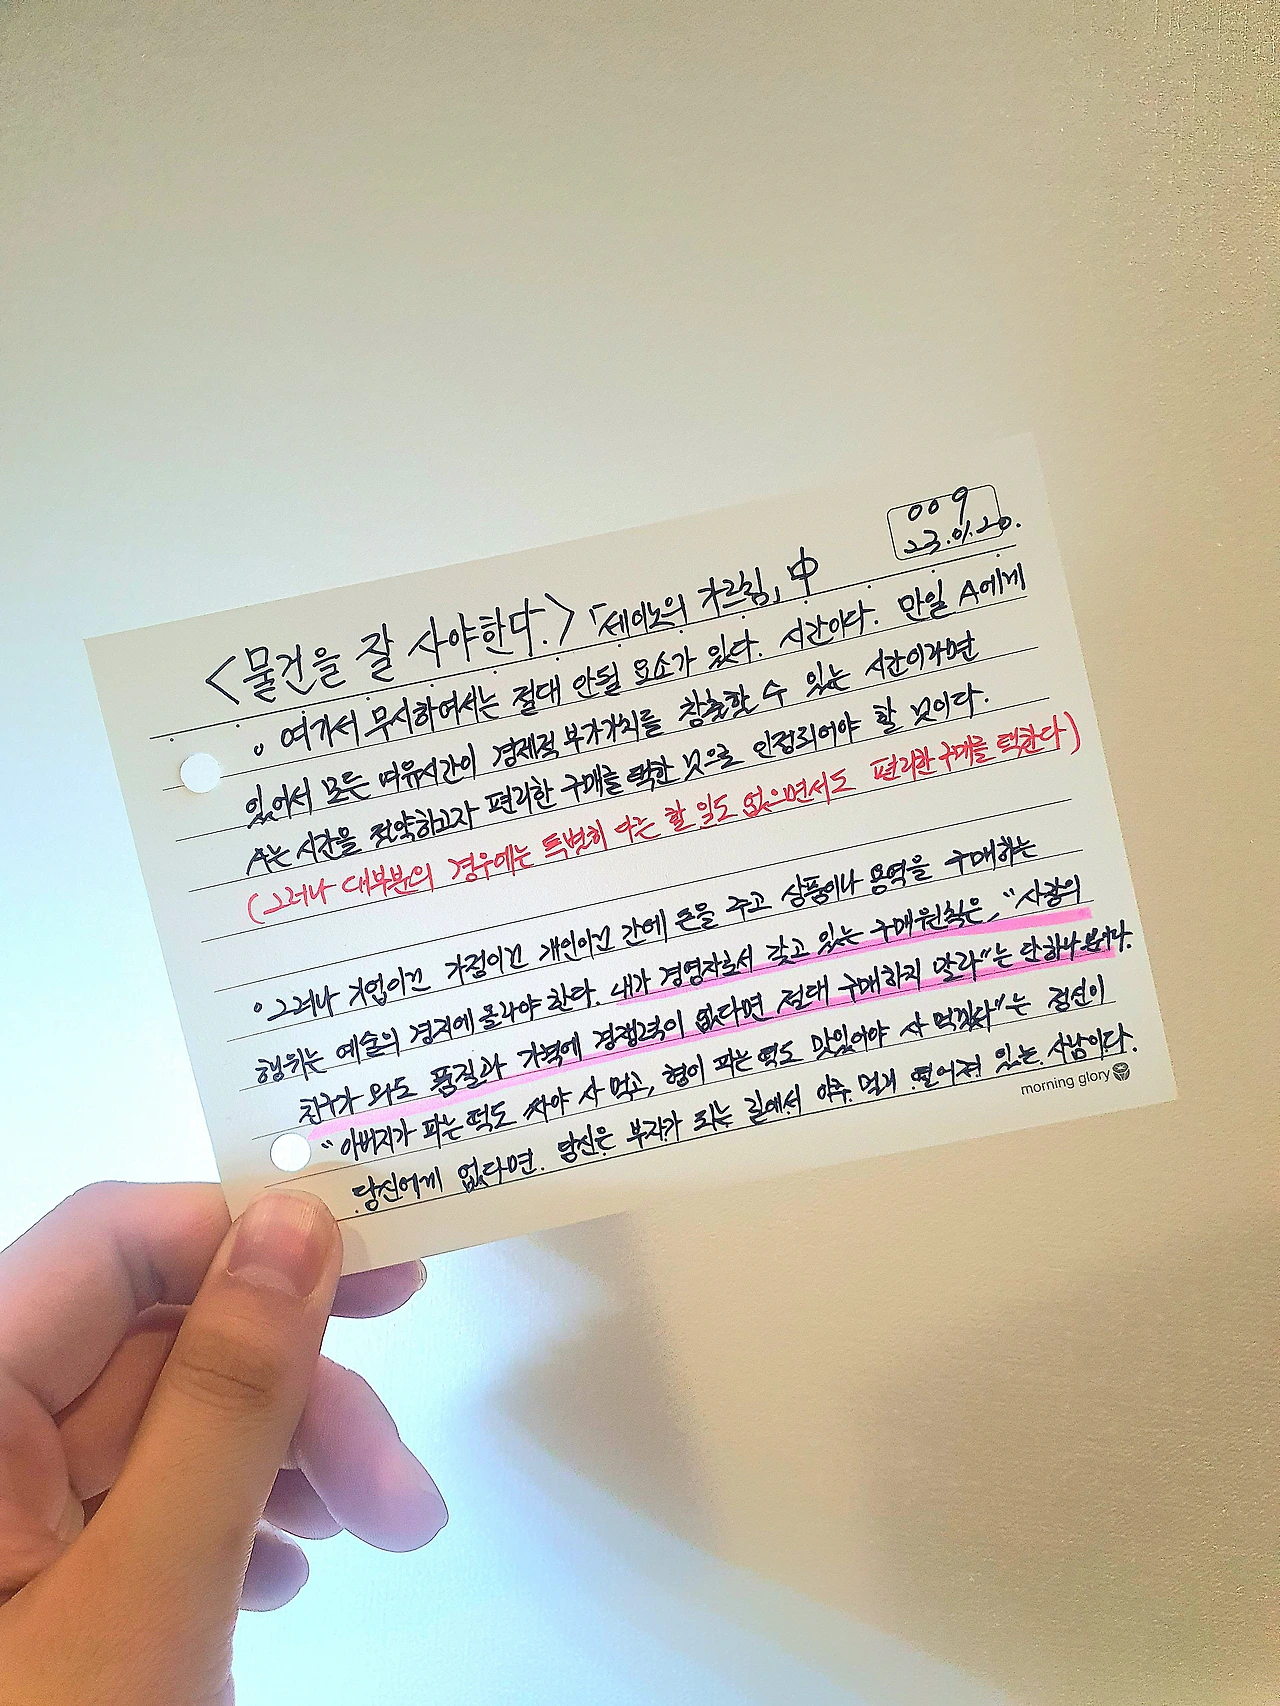 009
23.01.20.
<물건을 잘 사야한다.> 「세이노의 가르침」 中
。여기서 무시하여서는 절대 안될 요소가 있다. 시간이다. 만일 A에게
있어서 모든 여유시간이 경제적 부가가치를 창출할 수 있는 시간이라면
A는 시간을 절약하고자 편리한 구매를 택한 것으로 인정되어야 할 것이다.
(그러나 대부분의 경우에는 특별히 다른 할 일도 없으면서도 편리한 구매를 택한다)
。그러나 기업이건 가정이건 개인이건 간에 돈을 주고 상품이나 용역을 구매하는
행위는 예술의 경지에 올라야 한다. 내가 경영자로서 갖고 있는 구매원칙은, "사장의
친구가 와도 품질과 가격에 경쟁력이 없다면 절대 구매하지 말라"는 단 하나 뿐이다.
"아버지가 파는 떡도 싸야 사 먹고, 형이 파는 떡도 맛있어야 사 먹겠다"는 정신이
당신에게 없다면. 당신은 부자가 되는 길에서 아주 멀리 떨어져 있는 사람이다.
morning glory